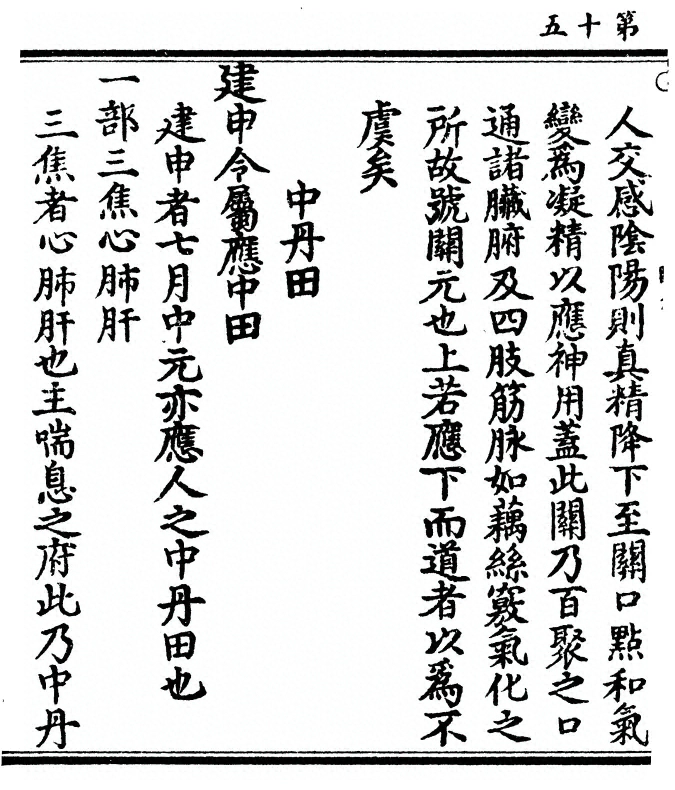 第十五
人交感陰陽則真精降下至關口點和氣
變爲凝精以應神用蓋此關乃百聚之口
通諸臟腑及四肢筋脉如藕絲竅氣化之
所故號關元也上若應下而道者以爲不
虞矣
中丹田
建申令屬應中田
建申者七月中元亦應人之中丹田也
一部三焦心肺肝
三焦者心肺肝也主喘息之府此乃中丹